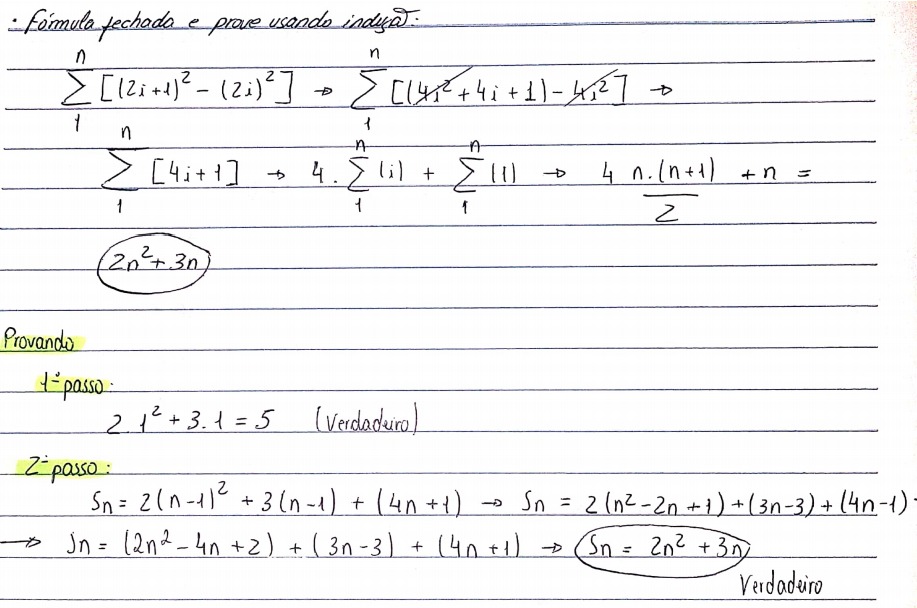 · Fórmula fechada e prove usando indução.
n ∑ 1 [(2i+1)² - (2i)²] → n ∑ 1 [(4i²+4i+1) - 4i²] →
n ∑ 1 [4i+1] → 4. n ∑ 1 (i) + n ∑ 1 (1) → 4 n.(n+1)/2 + n =
2n²+3n
Provando
1º passo:
2 1² + 3.1 = 5 (Verdadeiro)
2º passo:
Sn = 2(n-1)² + 3(n-1) + (4n+1) → Sn = 2(n²-2n+1)+(3n-3)+(4n-1).
→ Sn = (2n²-4n+2) + (3n-3) + (4n+1) → Sn = 2n² + 3n
Verdadeiro